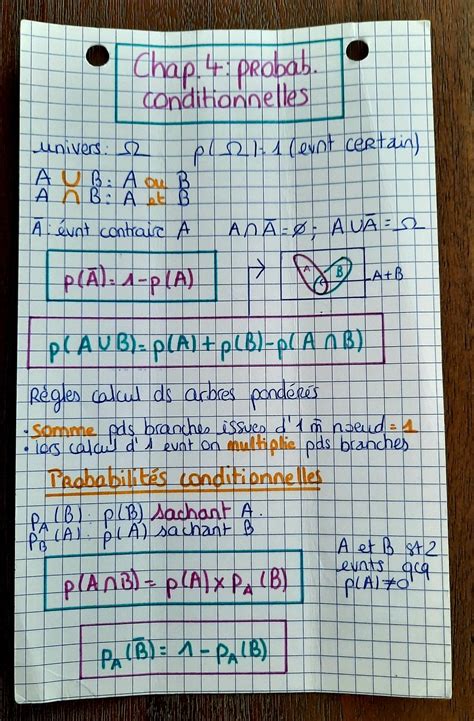 Chap. 4 : probab.
conditionnelles
univers : Ω p(Ω) = 1 (evnt certain)
A ∪ B : A ou B
A ∩ B : A et B
Ā : évnt contraire A A∩Ā = ∅ ; A∪Ā = Ω
p(Ā) = 1 - p(A)
A B A+B
p(A∪B) = p(A) + p(B) - p(A∩B)
Règles calcul ds arbres pondérés
• Somme pds branches issues d'1 m̂ noeud = 1
• lors calcul d'1 evnt on multiplie pds branches
Probabilités conditionnelles
p_A(B) : p(B) sachant A.
p_B(A) : p(A) sachant B
p(A∩B) = p(A) × p_A(B)
A et B st 2
evnts qcq
p(A) ≠ 0
p_A(B̄) = 1 - p_A(B)